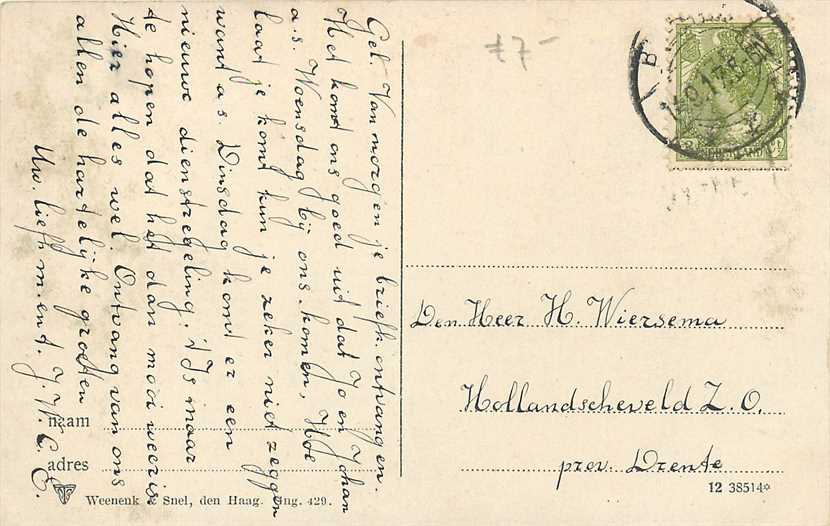 Gel. Van morgen je briefk. ontvangen.
Het komt ons goed uit dat Jo en Johan
a.s. Woensdag bij ons komen, Hoe
laat je komt kun je zeker niet zeggen
want a.s. Dinsdag komt er een
nieuwe dienstregeling. 't Is maar
te hopen dat het dan mooi weer is
Hier alles wel Ontvang van ons
allen de hartelijke groeten
Uw liefh. m. en t. J. W. C. E.
naam
adres
Weenenk & Snel, den Haag. Ing. 429.
£7-
NEDERLAND
Den Heer H. Wiersema
Hollandscheveld Z. O.
prov. Drente
12 38514*